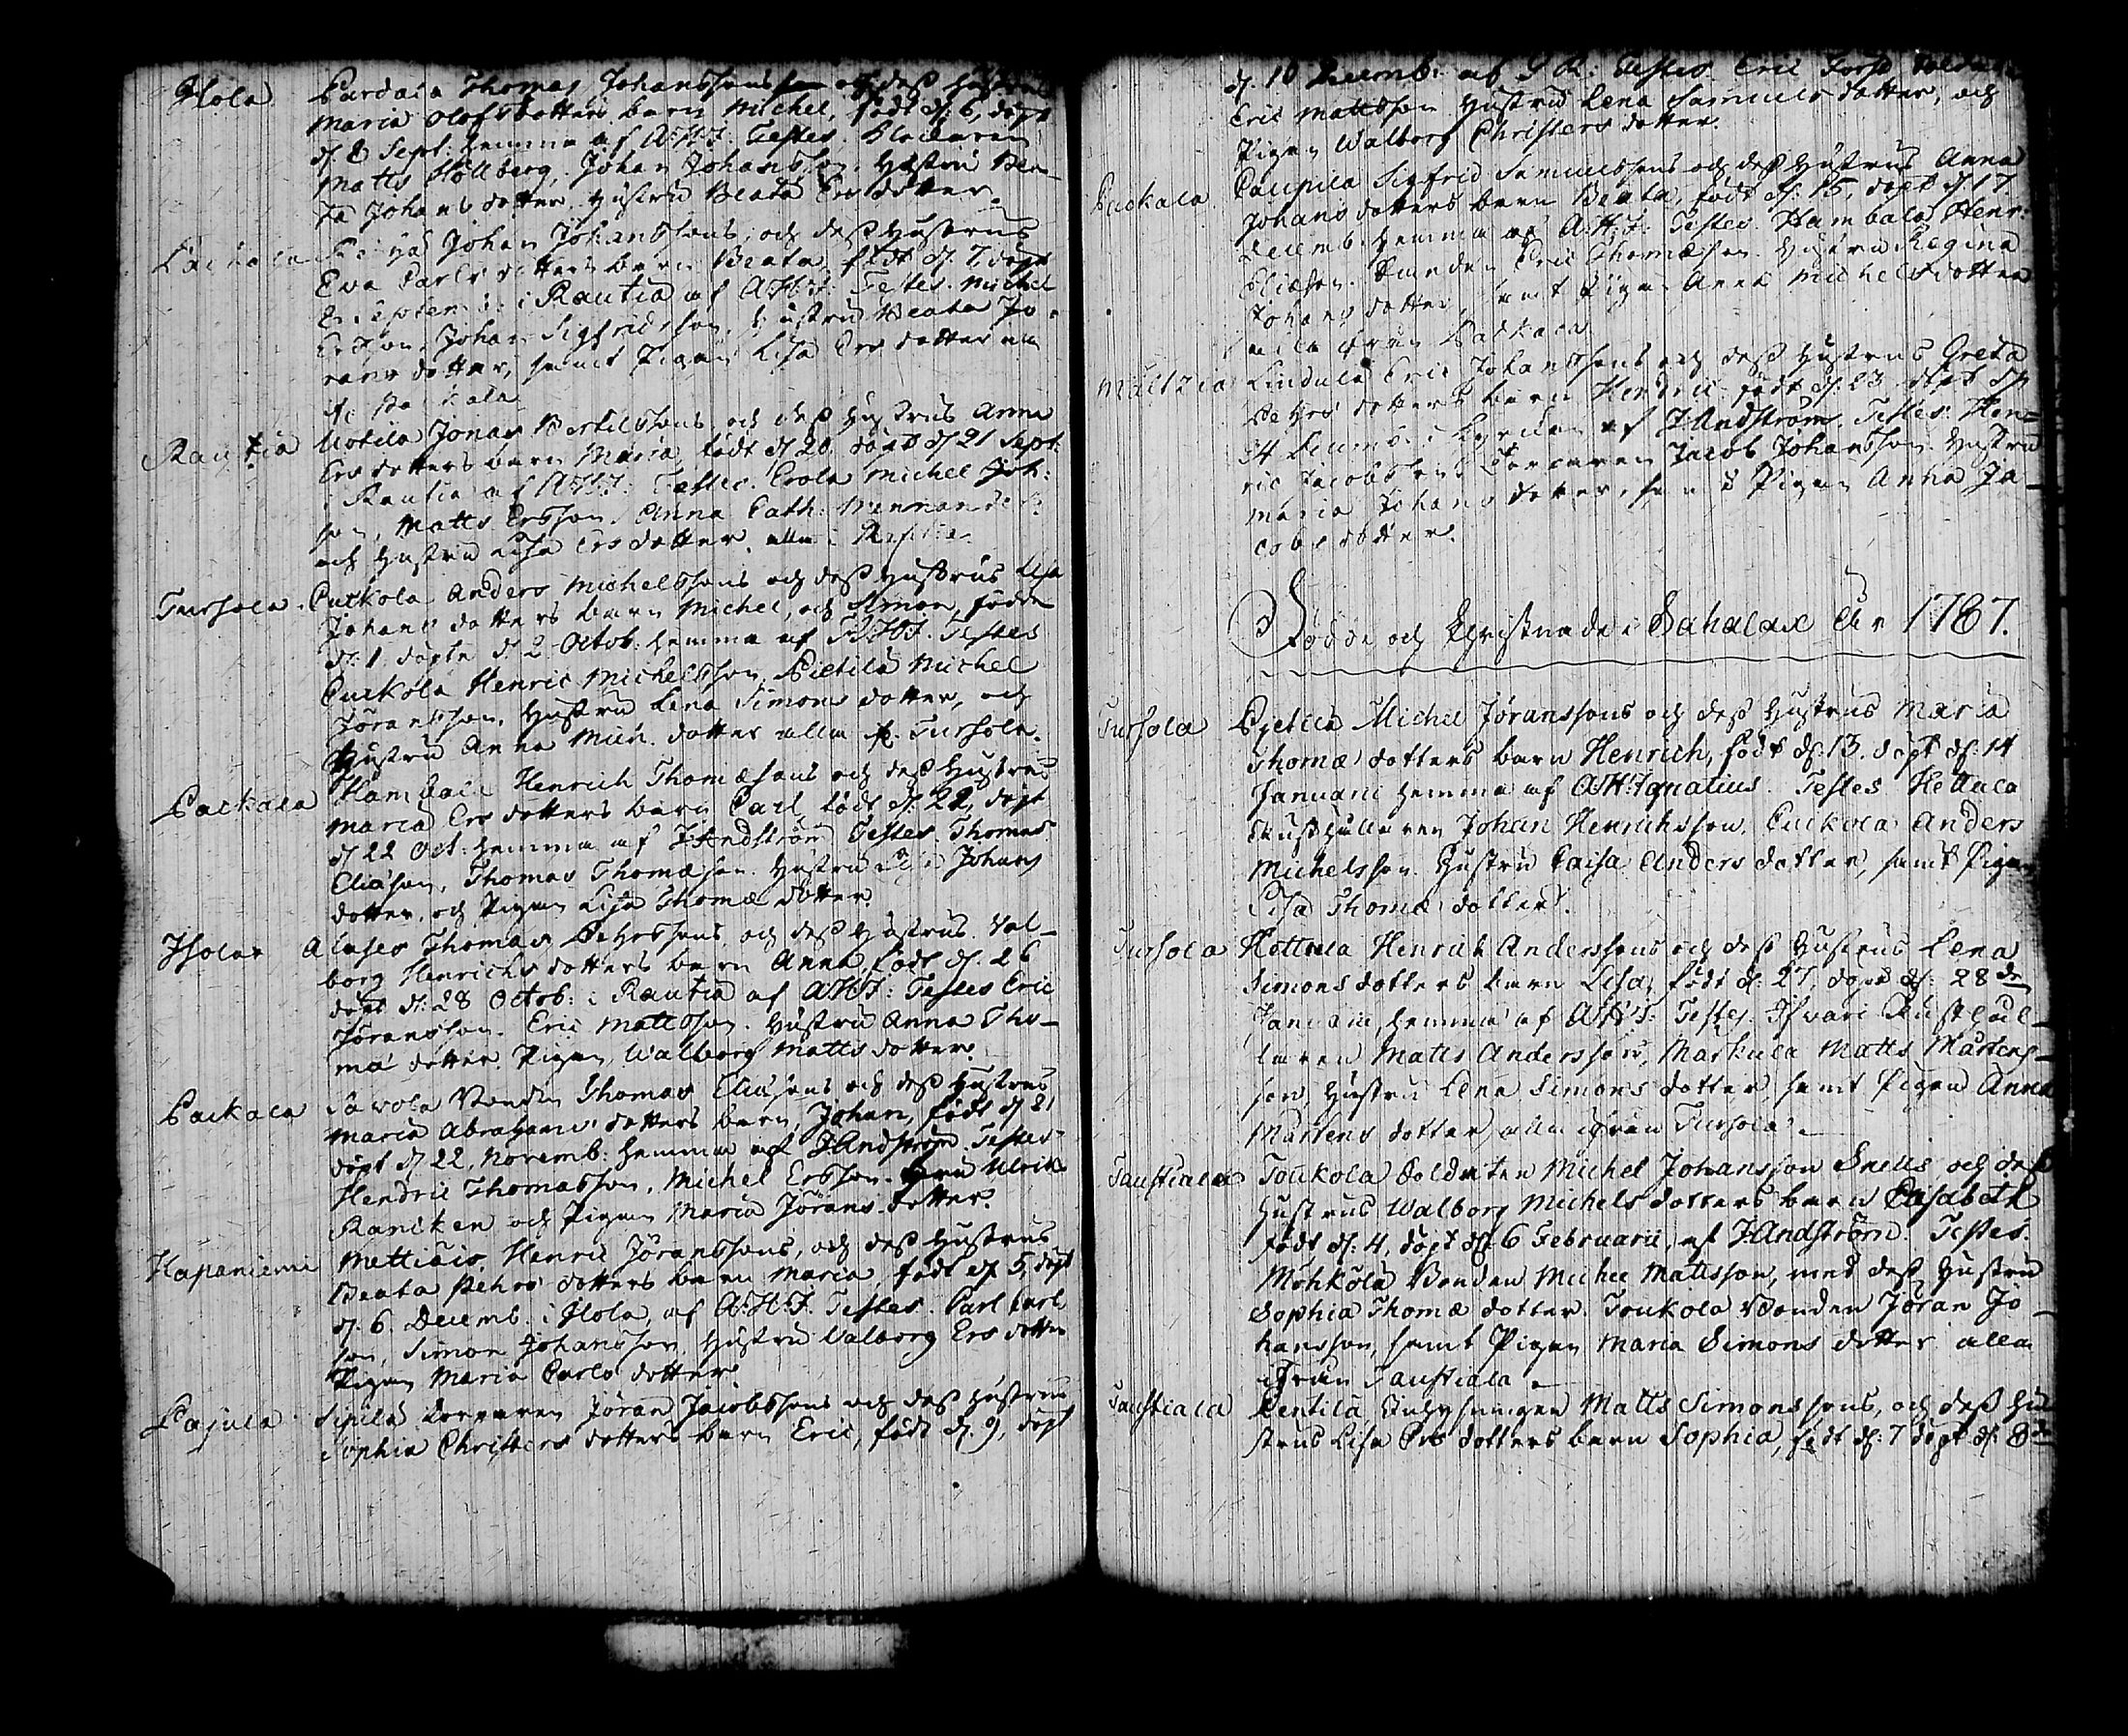 Hola Pardala Thomas Johanssons och dess Hustrus
Maria Olofsdotters barn Michel, födt d. 6, döpt
d. 8 Sept: hemma af A.H.I: Testes. Klockaren
Matts Höllberg, Johan Johansson, Hustru
Johansdotter. Hustru Beata Ersdotter.
Johan Johanssons, och dess Hustrus
Eva Carlsdotters barn Beata, födt d. 7. döpt
i Rautia af A.H.I: Testes. Michel
Ersson, Johan Sigfridsson, Hustru Beata Jö-
rans dotter, samt Pigan Lisa Ers dotter alla
Rautia Uotila Jonas Bertilssons och dess Hustrus Anna
Ers dotters barn Maria födt d. 20, döpt d. 21 Sept:
i Rautia af A.H.I: Testes. Erola Michel Joh:
son, Matts Ersson, Anna Cath:
och Hustru Lisa Ersdotter. alla i
Tursola. Cuckola Anders Michelssons och dess Hustrus Lisa
Johans dotters barn Michel, och Simon, födde
d: 1. döpte d: 2 Octob: hemma af A.H.I. Testes
Cuckola Henric Michelsson, Pietilä Michel
Jöransson, Hustru Lena Simons dotter, och
Hustru Anna Mich. dotter alla fr. Tursola.
Packala Hambala Henrich Thomæsons och dess Hustrus
Maria Ers dotters barn Carl, födt d. 22, döpt
d. 22 Oct: hemma af J:Andström Testes. Thomas
Eliæson, Thomas Thomæson. Hustru Johans
dotter, och Pigan Lisa Thomæ dotter.
Isolax Alaspes Thomas Pehrssons, och dess Hustrus. Val-
borg Henrichs dotters barn Anna, födt d. 26
döpt d: 28 Octob: i Rautia af A.H.I: Testes Eric
Jöransson. Eric Mattsson. Hustru Anna Tho-
mæ dotter. Pigan Walborg Matts dotter.
Packala Savola Bonden Thomas Eliæsons och dess Hustrus
Maria Abrahams dotters barn, Johan, födt d. 21
döpt d. 22, Novemb: hemma af J:Andström Testes.
Hendric Thomasson, Michel Ersson. Fru Ulrika
Rancken och Pigan Maria Jörans dotter.
Hapaniemi Henric Jöranssons, och dess Hustrus
Beata Pehrs dotters barn Maria, födt d. 5, döpt
d. 6. Decemb. i Hola, af A.H.I. Testes. Carl Carls
son, Simon Johansson, Hustru Valborg Ers dotter
Pigan Maria Carls dotter.
Pajula Sipilä Torparen Jöran Jacobssons och dess Hustrus
Sophia Christers dotters barn Eric, födt d. 9, döpt
d. 10 Decemb: af Testes. Eric
Eric Mattsson Hustru Lena Samuels dotter, och
Pigan Walborg Christers dotter.
Packala Caupila Sigfrid Samuelssons och dess Hustrus Anna
Johans dotters barn Beata, födt d. 15, döpt d. 17
Decemb: hemma af A.H.I: Testes. Hambala Henr:
Eliæson. Bonden Eric Thomæson. Hustru Regina
Johans dotter, samt Pigan Anna Michels dotter
alla ifrån Packala
Lindula Eric Johanssons och dess Hustrus Greta
Pehrs dotters barn Hendric födt d. 23 döpt d.
24 Decemb: i af J:Andström. Testes. Hen=
ric Jacobsson Torparen Jacob Johansson. Hustru
Maria Johans dotter, samt Pigan Anna Ja-
cobs dotter.
Födde och Christnade i Sahalax År 1787.
Tursola Pjetilä Michel Jöranssons och dess Hustrus Maria
Thomæ dotters barn Henrich, födt d. 13. döpt d. 14
Januarii hemma af A.H:Ignatius. Testes Hettula
Rusthållaren Johan Henrichsson. Cuckola Anders
Michelsson. Hustru Caisa Anders dotter, samt Pigan
Lisa Thomæ dotter.
Tursola Hettula Henrich Anderssons och dess Hustrus Lena
Simons dotters barn Lisa, födt d: 27, döpt d: 28 de
Januarii, hemma af A.H.I: Testes. Rusthål-
laren Matts Andersson, Markula Matts Mårtens-
son, Hustru Lena Simons dotter, samt Pigan Anna
Mårtens dotter, alla ifrån Tursola.
Taustiala Toukola Soldaten Michel Johansson Snells och dess
Hustrus Walborg Michels dotters barn Elisabeth
födt d: 4, döpt d: 6 Februarii, af J:Andström. Testes.
Möhkölä Bonden Michel Mattsson, med dess Hustru
Sophia Thomæ dotter. Toukola Bonden Jöran Jo-
hansson, samt Pigan Maria Simons dotter alla
ifrån Taustiala.
Taustiala Pentilä Matts Simonssons, och dess Hu
strus Lisa Ers dotters barn Sophia, födt d: 7 döpt d: 8 de